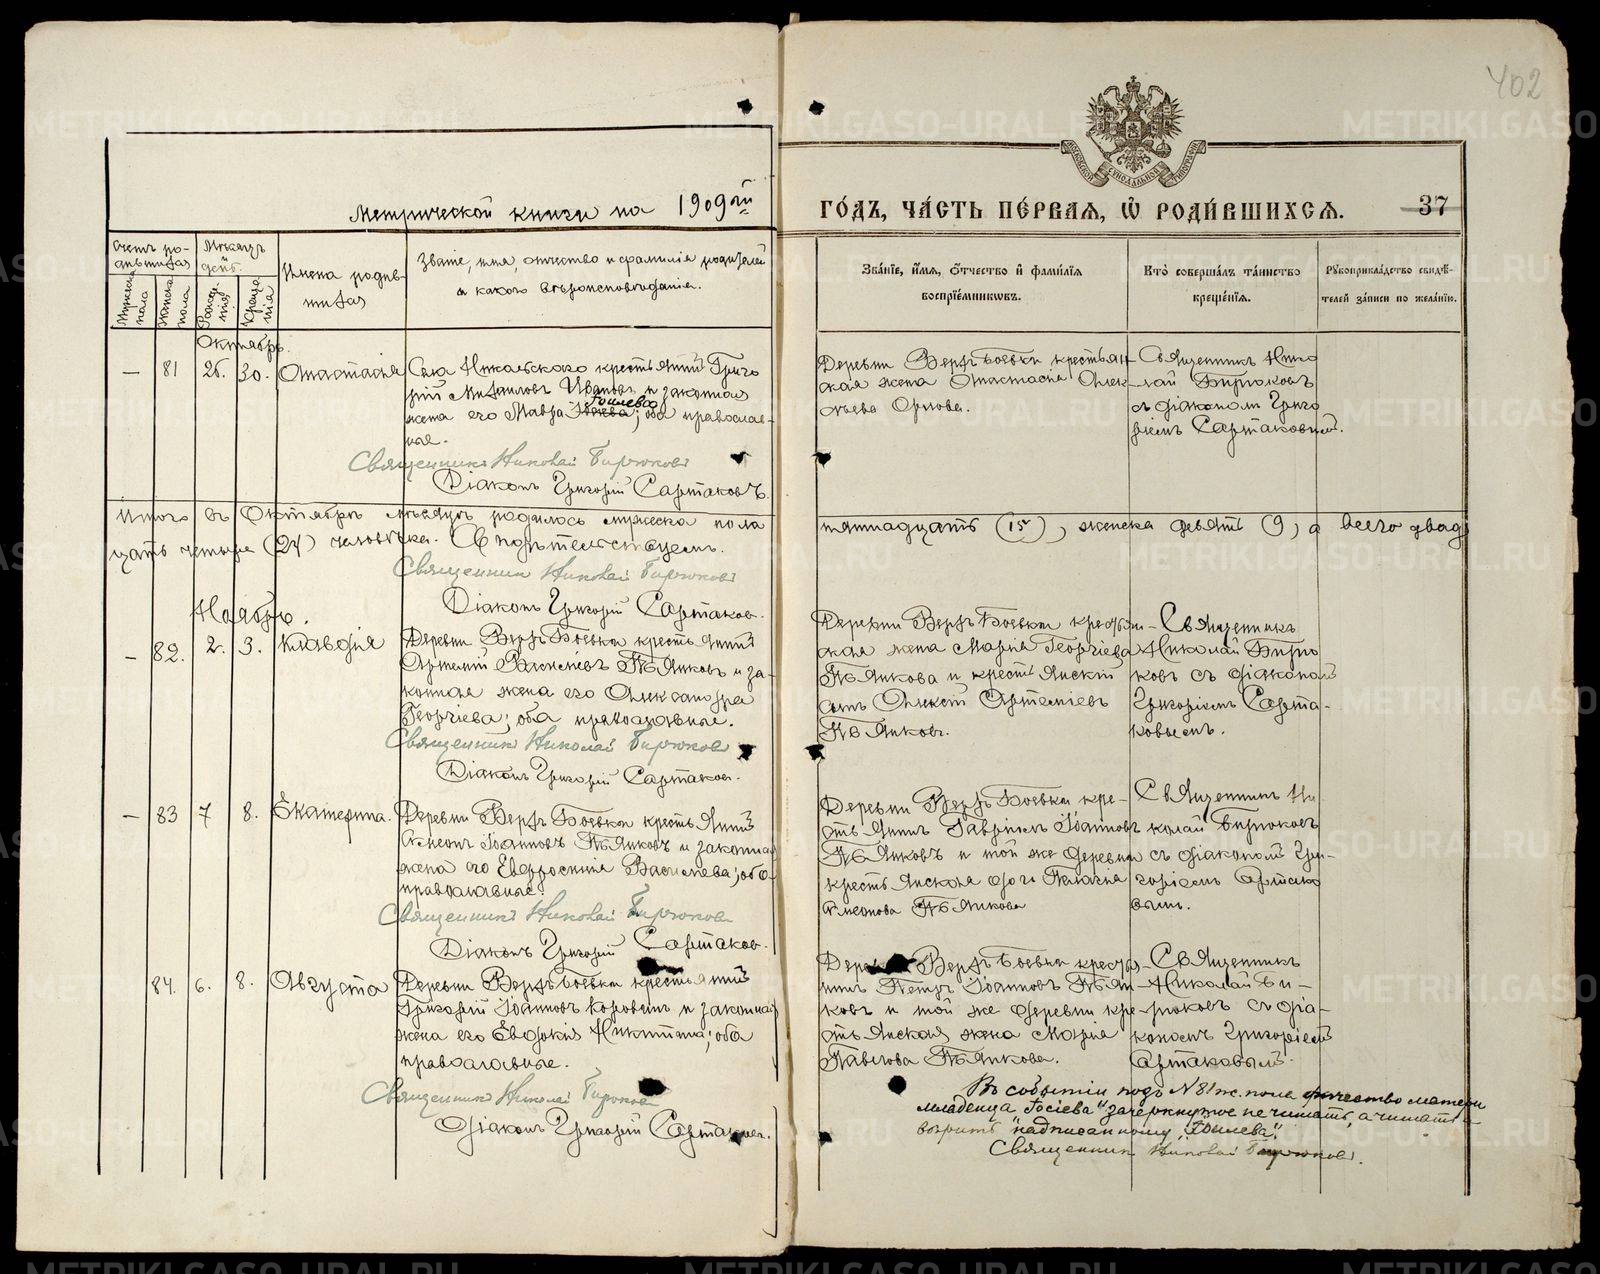 402
Метрической книги на 1909 ый
ГО́ДЪ, ЧА́СТЬ ПЕ́РВАЯ, Ѽ РОДИ́ВШИХСЯ.
37
Счетъ ро-
дившихся
Мужеска пола
Женска пола
Мѣсяцъ
Рожденія
Крещенія
Имена родив-
шихся
Званіе, имя, отчество и фамилія родителей
и какого вѣроисповѣданія.
Зва́нїе, и҆́мѧ, ѻ҆́тчество и҆ фами́лїѧ
воспрїе́мниковъ.
Кто̀ соверша́лъ та́инство
креще́нїѧ.
Рꙋкоприкла́дство свидѣ́-
телей за́писи по жела́нїю.
Октябрь.
— 81 26. 30. Анастасія
Села Никольскаго крестьянинъ Григо
рій Михаиловъ Ивановъ и законная
Гошева
жена его Мавра ; оба православ-
ные.
Священникъ Николай Бирюковъ
Діаконъ Григорій Сартаковъ.
Деревни Верхъ Боевки крестьян
ская жена Анастасія Алек-
Орлова.
Священникъ Нико
лай Бирюковъ
съ діакономъ Григо
ріемъ Сартаковымъ.
Итого въ Октябрѣ мѣсяцѣ родилось мужеска пола
пятнадцать (15), женска девять (9), а всего двад
цать четыре (24) человѣка. Свидѣтельствуемъ.
Священникъ Николай Бирюковъ
Діаконъ Григорій Сартаков.
Ноябрь.
— 82. 2. 3. Клавдія
Деревни Верхъ Боевки крестьянинъ
Артемій Василіевъ Пьянковъ и за-
конная жена его Александра
Георгіева; оба православные.
Священникъ Николай Бирюковъ
Діаконъ Григорій Сартаков.
Деревни Верхъ Боевки крестьян-
ская жена Марія Георгіева
Пьянкова и крестьянскій
сынъ Алексѣй Артеміевъ
Пьянковъ.
Священникъ
Николай Бирю
ковъ съ діакономъ
Григоріемъ Сарта-
ковымъ.
— 83 7 8. Екатерина.
Деревни Верхъ Боевки крестьянинъ
Симеонъ Іоанновъ Пьянковъ и законная
жена его Евфросинія Василіева; оба
православные.
Священникъ Николай Бирюковъ
Діаконъ Григорій Сартаков.
Деревни Верхъ Боевки кре-
стьянинъ Гавріилъ Іоанновъ
Пьянковъ и той же деревни
крестьянская дочь Пелагія
Симеонова Пьянкова
Священникъ Ни
колай Бирюковъ
съ діакономъ Гри-
горіемъ Сартако
вымъ.
84. 6. 8. Августа
Деревни Верхъ Боевки крестьянинъ
Григорій Іоанновъ Коровинъ и законная
жена его Евдокія Никитина; оба
православные.
Священникъ Николай Бирюковъ
Діаконъ Григорій Сартаков.
Деревни Верхъ Боевки крестья-
нинъ Петръ Іоанновъ Пьян-
ковъ и той же деревни кре-
стьянская жена Марія
Павлова Пьянкова.
Священникъ
Николай Би-
рюковъ съ діа-
кономъ Григоріемъ
Сартаковымъ.
Въ событіи подъ № 81 ж. пола отчество матери
младенца "Госіева" зачеркнутое не читать, а читать
вѣрить надписанному
Священникъ Николай Бирюковъ.
METRIKI.GASO-URAL.RU